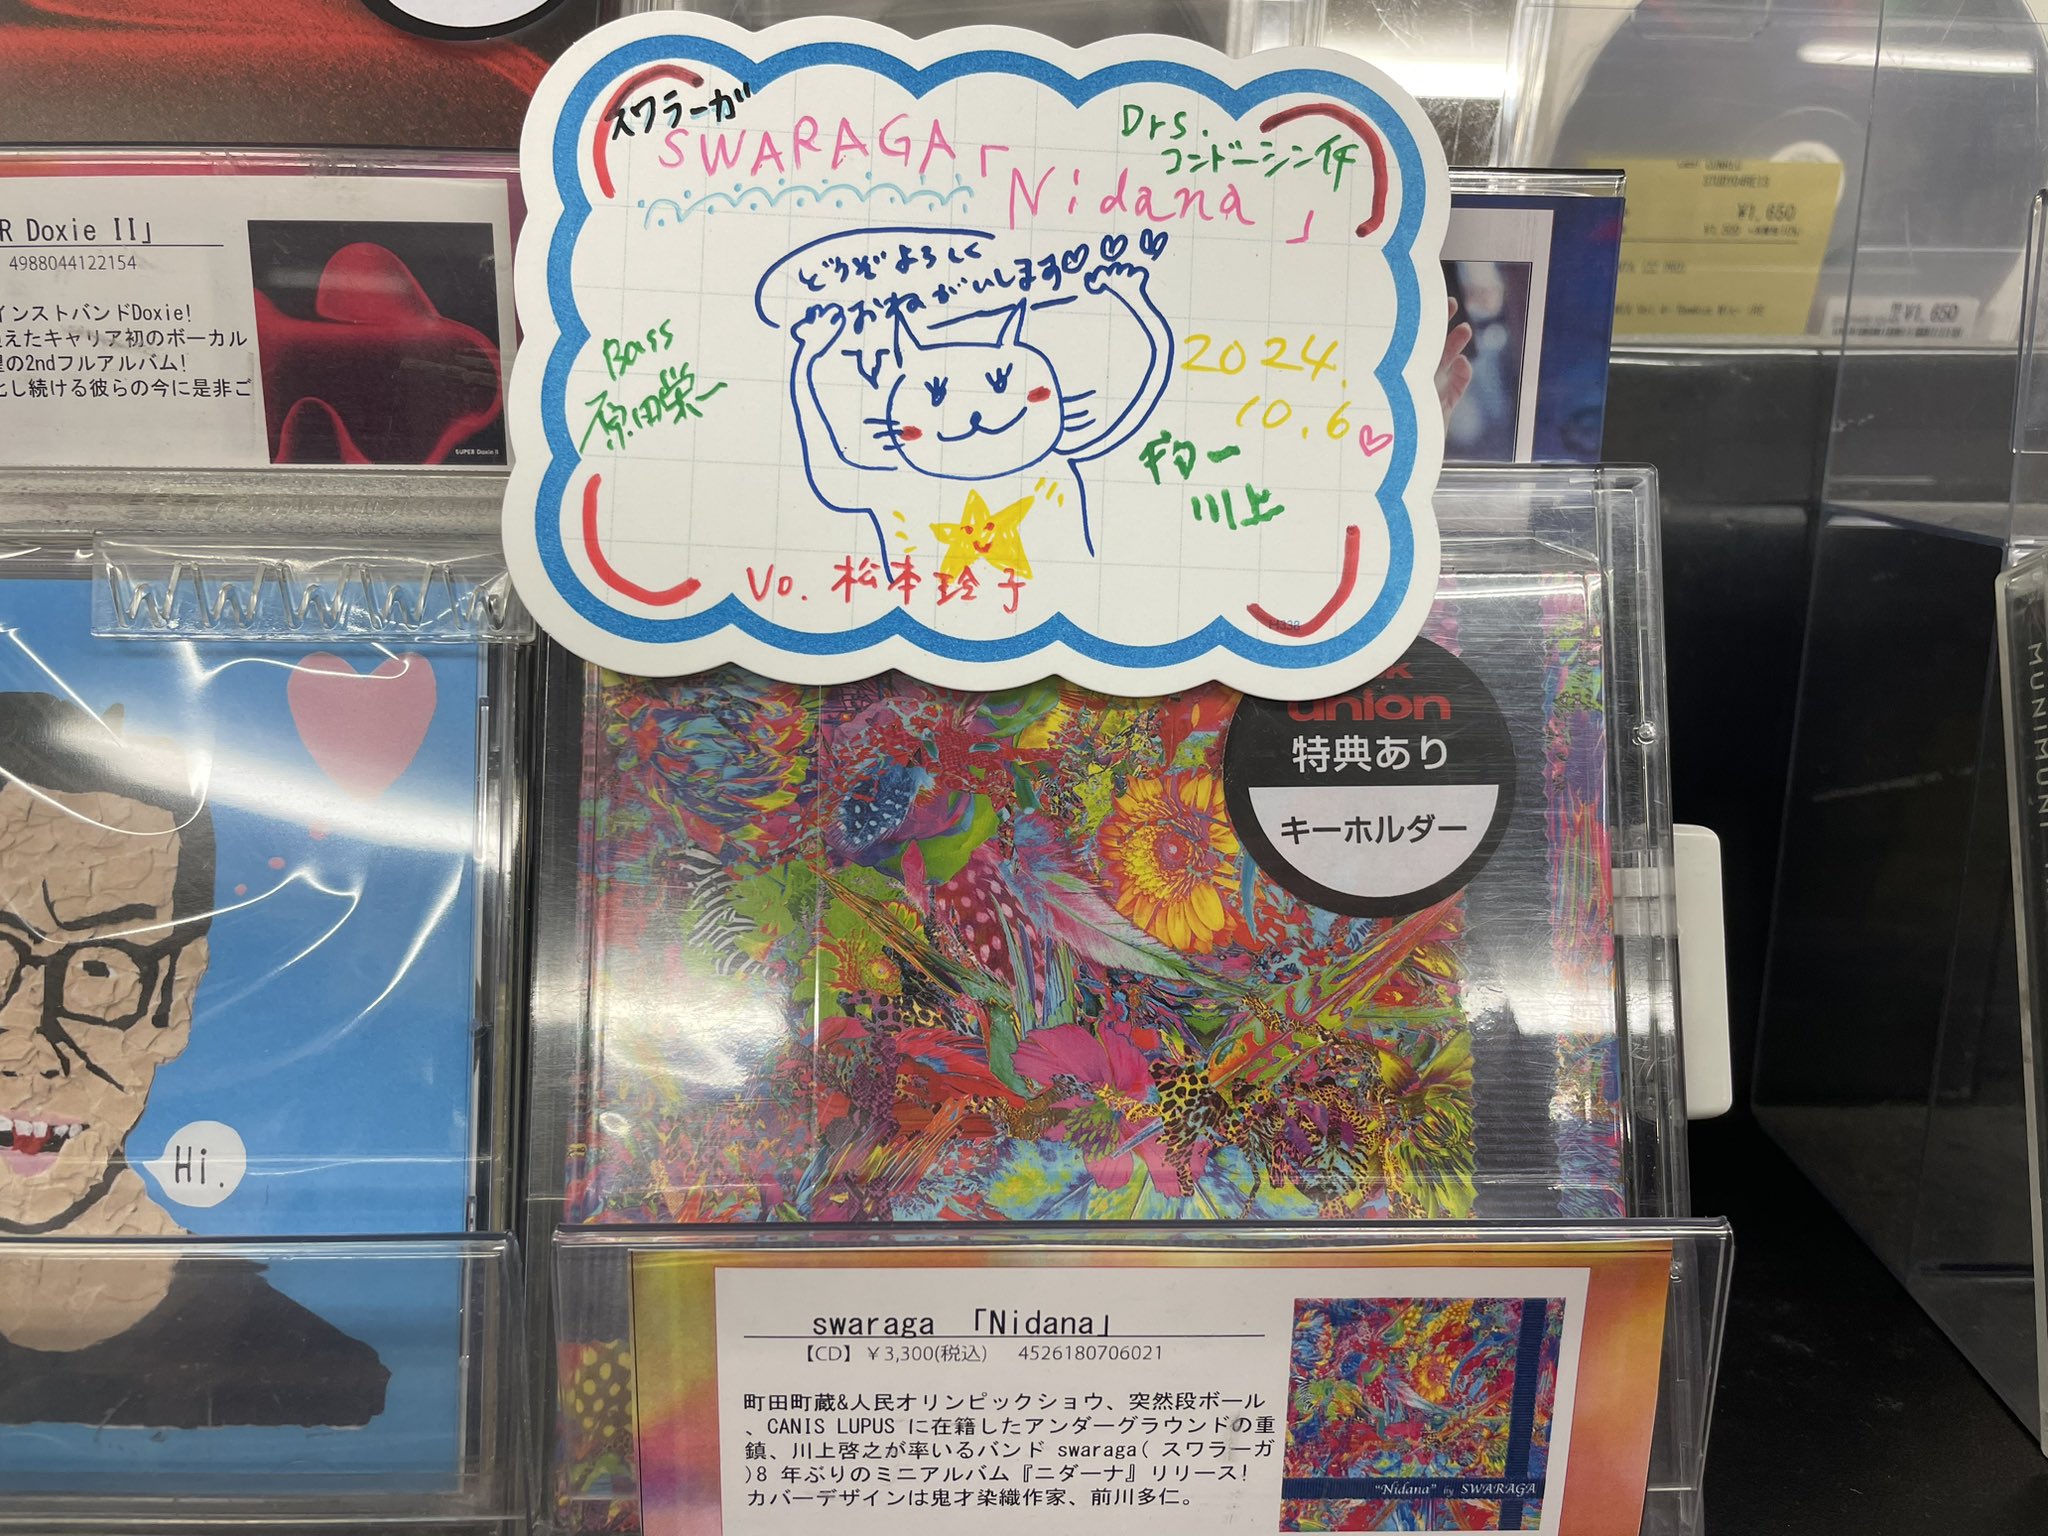 スワラーガ
SWARAGA「Nidana」
Drs.
コンドーシン作
どうぞよろしく
おねがいします♡♡♡
Bass
原田栄一
2024.
10.6♡
ギター
川上
Vo. 松本玲子
H338
R Doxie II」
4988044122154
インストバンドDoxie!
えたキャリア初のボーカル
の2ndフルアルバム!
化し続ける彼らの今に是非ご
SUPER Doxie II
¥1,650
¥1,650
union
特典あり
キーホルダー
Hi.
MUNIMUNI
swaraga 「Nidana」
【CD】¥3,300(税込) 4526180706021
町田町蔵&人民オリンピックショウ、突然段ボール
、CANIS LUPUS に在籍したアンダーグラウンドの重
鎮、川上啓之が率いるバンド swaraga( スワラーガ
)8 年ぶりのミニアルバム『ニダーナ』リリース!
カバーデザインは鬼才染織作家、前川多仁。
"Nidana" by SWARAGA